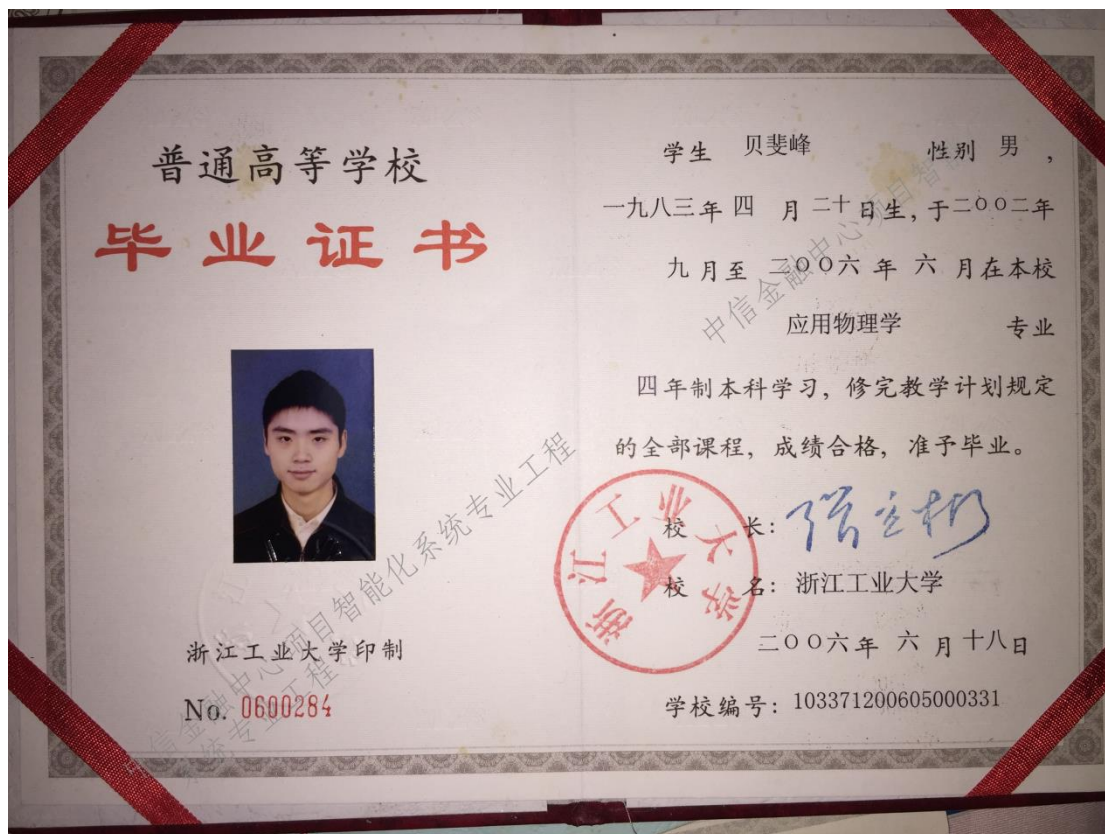 普通高等学校
毕业证书
浙江工业大学印制
No. 0600284
学生 贝斐峰 性别 男 ，
一九八三年 四 月 二十 日生，于二〇〇二年
九月至 二〇〇六 年 六 月在本校
应用物理学 专业
四年制本科学习，修完教学计划规定
的全部课程，成绩合格，准予毕业。
校 长：
校 名：浙江工业大学
二〇〇六年 六 月十八日
学校编号：103371200605000331
浙江工业大学
中信金融中心项目智
中信金融中心项目智能化系统专业工程
系统专业工程